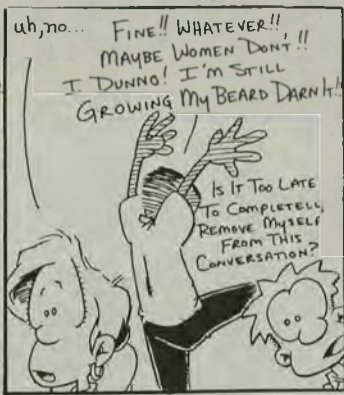 uh, no...
FINE!! WHATEVER!!
MAYBE WOMEN DON'T!!
I DUNNO! I'M STILL
GROWING MY BEARD DARN IT!!
IS IT TOO LATE
TO COMPLETELL
REMOVE MYSELF
FROM THIS
CONVERSATION?